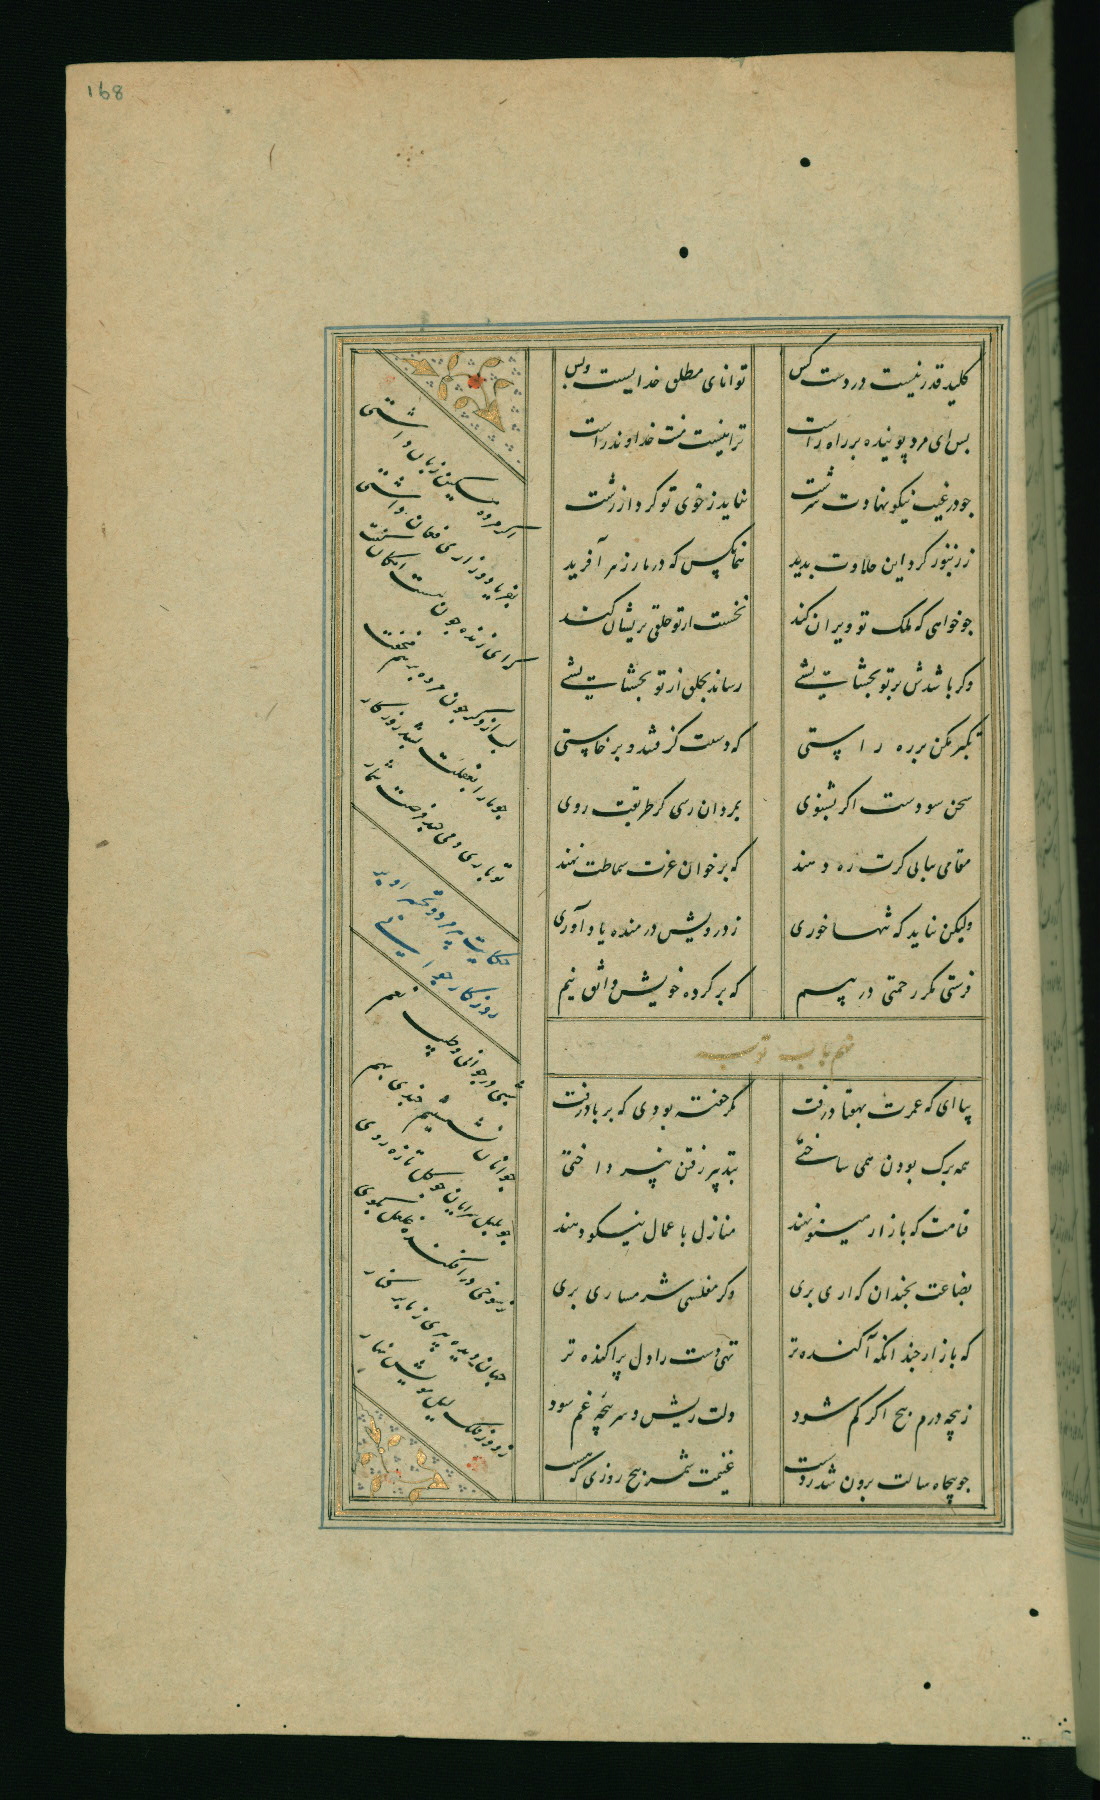 168
کلید قدر نیست در دست کس توانای مطلق خدایست وبس
بس ای مرد پوینده بر راه راست ترا نیست منت خداوند راست
جو در غیب نیکو نهادت سرشت نیاید ز خوی تو کردار زشت
ز زنبور کرد این حلاوت بدید همانکس که در مار زهر آفرید
جو خواهی که ملک تو ویران کند نخست از تو خلقی بریشان کند
وکر باشدش بر تو بخشایشی رساند بخلق از تو بخشایشی
تکبر مکن بر ره راستی که دست کرفتند و برخاستی
سخن سودست اکر بشنوی بمردان رسی کر طریقت روی
مقامی بیابی کرت ره دهند که بر خوان عزت سماطت نهند
ولیکن نباید که تنها خوری ز درویش درمنده یاد آوری
فرستی مکر رحمتی در پیم که بر کرده خویش واثق نیم
نهم باب توبه
بیا ای که عمرت بهفتاد رفت مکر خفته بودی که بر باد رفت
همه برک بودن همی ساختی بتدبیر رفتن نپرداختی
قیامت که بازار مینو نهند منازل باعمال نیکو دهند
بضاعت بچندان که اری بری وکر مفلسی شرمساری بری
که بازار چندانکه آکنده تر تهی دست را دل پراکنده تر
ز پنجه درم پنج اکر کم شود دلت ریش سرپنجه غم شود
جو پنجاه سالت برون شد ز دست غنیمت شمر پنج روزی که هست
اکر مرده مسکین زبان داشتی
بفریاد وزاری فغان داشتی
که ای زنده جون هست امکان کفت
لب از ذکر جون مرده بر هم مخفت
جو ما را بغفلت بشد روزکار
تو باری دمی چند فرصت شمار
حکایت پیرمرد وتحسر او بر
روزکار جوانی
شبی در جوانی وطیب نعم
جوانان نشستیم جندی بهم
جو بلبل سرایان جو کل تازه روی
ز شوخی در افکنده غلغل بکوی
جهان دیده پیری ز ما بر کنار
ز دور فلک لیل مویش نهار